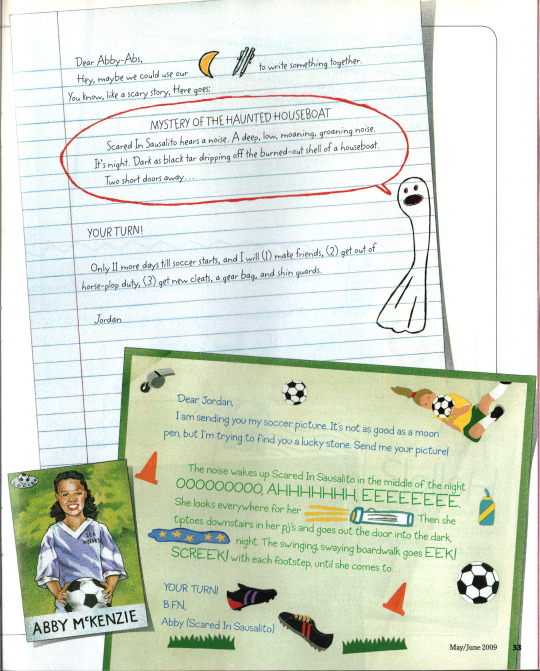 Dear Abby-Abs,
Hey, maybe we could use our to write something together.
You know, like a scary story, Here goes:
MYSTERY OF THE HAUNTED HOUSEBOAT
Scared In Sausalito hears a noise. A deep, low, moaning, groaning noise.
It's night. Dark as black tar dripping off the burned-out shell of a houseboat.
Two short doors away...
YOUR TURN!
Only 11 more days till soccer starts, and I will (1) make friends, (2) get out of
horse-plop duty, (3) get new cleats, a gear bag, and shin guards.
Jordan
Dear Jordan,
I am sending you my soccer picture. It's not as good as a moon
pen, but I'm trying to find you a lucky stone. Send me your picture!
The noise wakes up Scared In Sausalito in the middle of the night
OOOOOOOOO, AHHHHHHH, EEEEEEEE.
She looks everywhere for her Then she
tiptoes downstairs in her pj's and goes out the door into the dark,
night. The swinging, swaying boardwalk goes EEK!
SCREEK! with each footstep, until she comes...
YOUR TURN!
B.F.N.,
Abby (Scared In Sausalito)
ABBY McKENZIE
May/June 2009 33